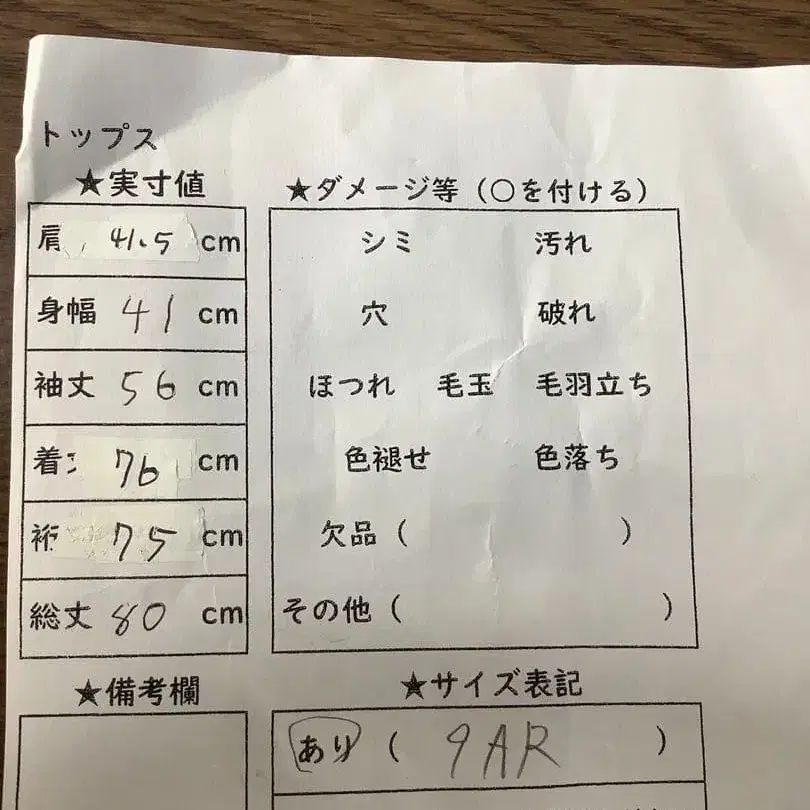 トップス
★実寸値
肩 41.5 cm
身幅 41 cm
袖丈 56 cm
着 76 cm
裄 75 cm
総丈 80 cm
★ダメージ等（〇を付ける）
シミ 汚れ
穴 破れ
ほつれ 毛玉 毛羽立ち
色褪せ 色落ち
欠品（ ）
その他（ ）
★備考欄
★サイズ表記
あり（ 9AR ）